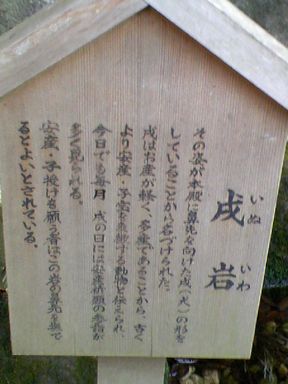 戌岩
いぬ いわ
その姿が本殿に鼻先を向けた戌(犬)の形を
していることから名づけられた。
戌はお産が軽く、多産であることから、古く
より安産・子宝を象徴する動物と伝えられ、
今日でも毎月、戌の日には安産祈願の参詣が
多く見られる。
安産・子授けを願う者はこの岩の鼻先を撫で
るとよいとされている。